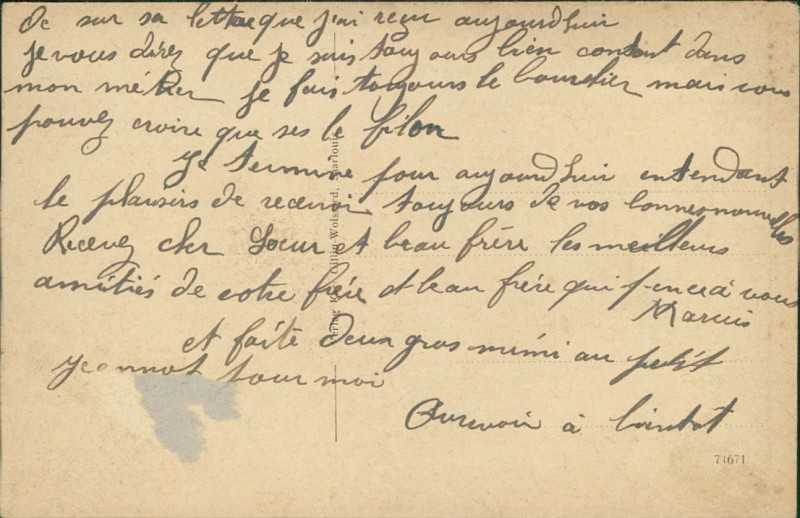 De sur sa lettre que j'ai reçu aujourdhuir
je vous direz que je suis toujours bien contant dans
mon métier je fais toujours le bourelier mais vous
pouvez croire que ses le filon
Je termine pour aujourdhuir entendant
le plaisirs de recevoir toujours de vos bonnes nouvelles
Recevez cher Soeur et beau frère les meilleurs
amitiés de votre frère et beau frère qui pence à vous
Marius
et faite deux gros mimi au petit
Jeannot pour moi
Aurevoir à bientot
Gillin-Woissard, Sarrelouis
74671